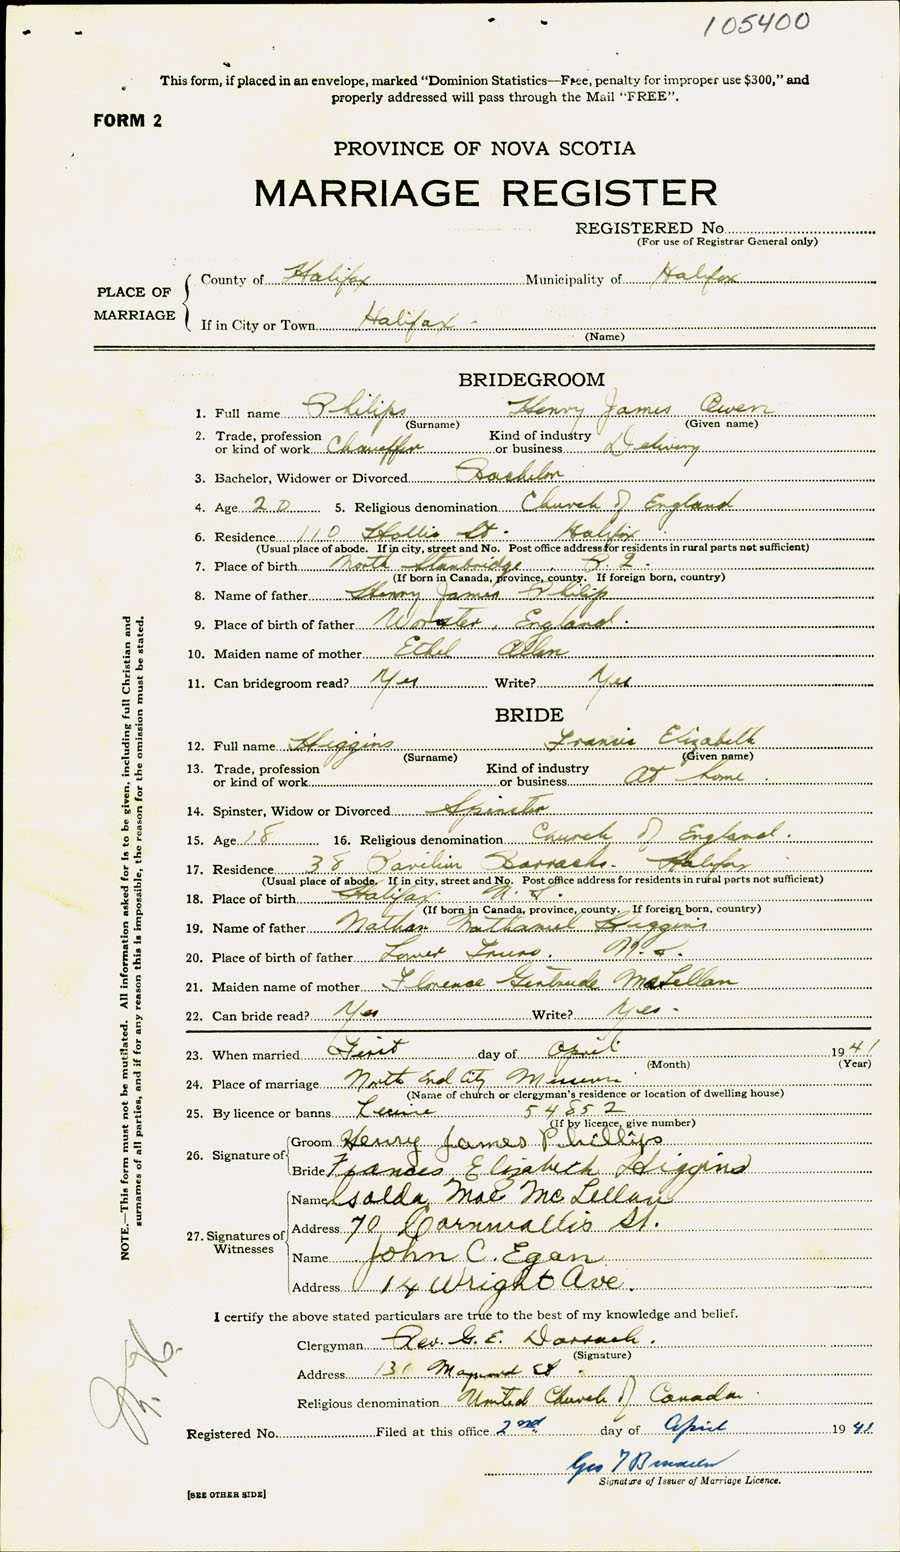 105400
This form, if placed in an envelope, marked "Dominion Statistics—Free, penalty for improper use $300," and
properly addressed will pass through the Mail "FREE".
FORM 2
PROVINCE OF NOVA SCOTIA
MARRIAGE REGISTER
REGISTERED No.
(For use of Registrar General only)
PLACE OF MARRIAGE
County of Halifax Municipality of Halifax
If in City or Town Halifax -
(Name)
BRIDEGROOM
1. Full name Philips Henry James Owen
(Surname) (Given name)
2. Trade, profession or kind of work Chauffer Kind of industry or business Delivery
3. Bachelor, Widower or Divorced Bachelor
4. Age 20 5. Religious denomination Church of England
6. Residence 110 Hollis St - Halifax
(Usual place of abode. If in city, street and No. Post office address for residents in rural parts not sufficient)
7. Place of birth North Stanbridge, P. Q.
(If born in Canada, province, county. If foreign born, country)
8. Name of father Henry James Philip
9. Place of birth of father Worster, England.
10. Maiden name of mother Ethel Allen
11. Can bridegroom read? Yes Write? Yes
BRIDE
12. Full name Higgins Francis Elizabeth
(Surname) (Given name)
13. Trade, profession or kind of work Kind of industry or business At home.
14. Spinster, Widow or Divorced Spinster
15. Age 18 16. Religious denomination Church of England.
17. Residence 38 Pavilion Barracks. Halifax
(Usual place of abode. If in city, street and No. Post office address for residents in rural parts not sufficient)
18. Place of birth Halifax N. S.
(If born in Canada, province, county. If foreign born, country)
19. Name of father Nathan Nathaniel Higgins
20. Place of birth of father Lower Truro. N. S.
21. Maiden name of mother Florence Gertrude McLellan
22. Can bride read? Yes Write? Yes -
23. When married First day of April 1941
(Month) (Year)
24. Place of marriage North End City Mission
(Name of church or clergyman's residence or location of dwelling house)
25. By licence or banns Licence 54852
(If by licence, give number)
26. Signature of
Groom Henry James Phillips
Bride Frances Elizabeth Higgins
27. Signatures of Witnesses
Name Isolda Mae McLellan
Address 70 Cornwallis St.
Name John C. Egan
Address 14 Wright Ave.
I certify the above stated particulars are true to the best of my knowledge and belief.
Clergyman Rev. G. E. Darrach.
(Signature)
Address 131 Maynard St
Religious denomination United Church of Canada.
Registered No. Filed at this office 2nd day of April 1941
Geo
Signature of Issuer of Marriage Licence.
[SEE OTHER SIDE]
NOTE.—This form must not be mutilated. All information asked for is to be given, including full Christian and
surnames of all parties, and if for any reason this is impossible, the reason for the omission must be stated.